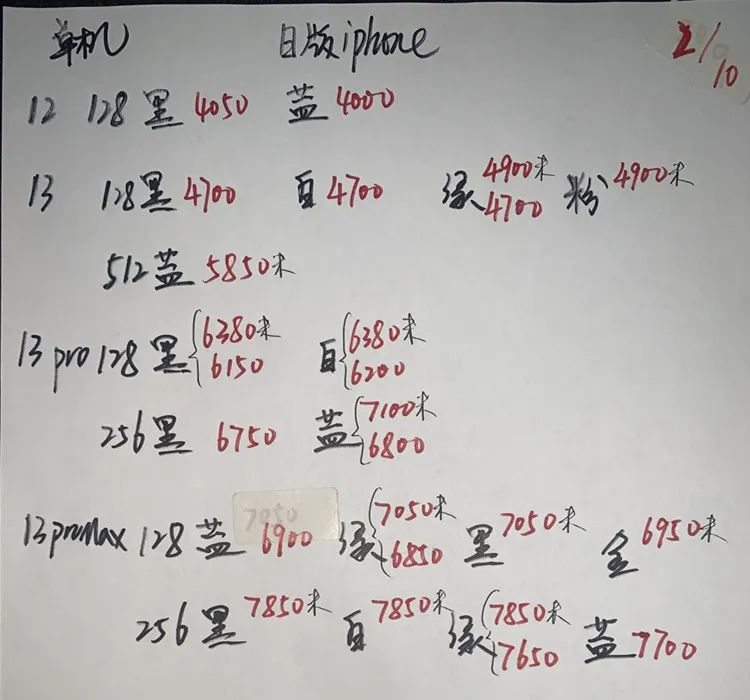 单机 日版iphone 2/10
12 128黑4050 蓝4000
13 128黑4700 白4700 绿4900未 4700 粉4900未
512蓝5850未
13pro128黑6380未 6150 白6380未 6200
256黑6750 蓝7100未 6800
13proMax128蓝6900 绿7050未 6850 黑7050未 金6950未
256黑7850未 白7850未 绿7850未 7650 蓝7700